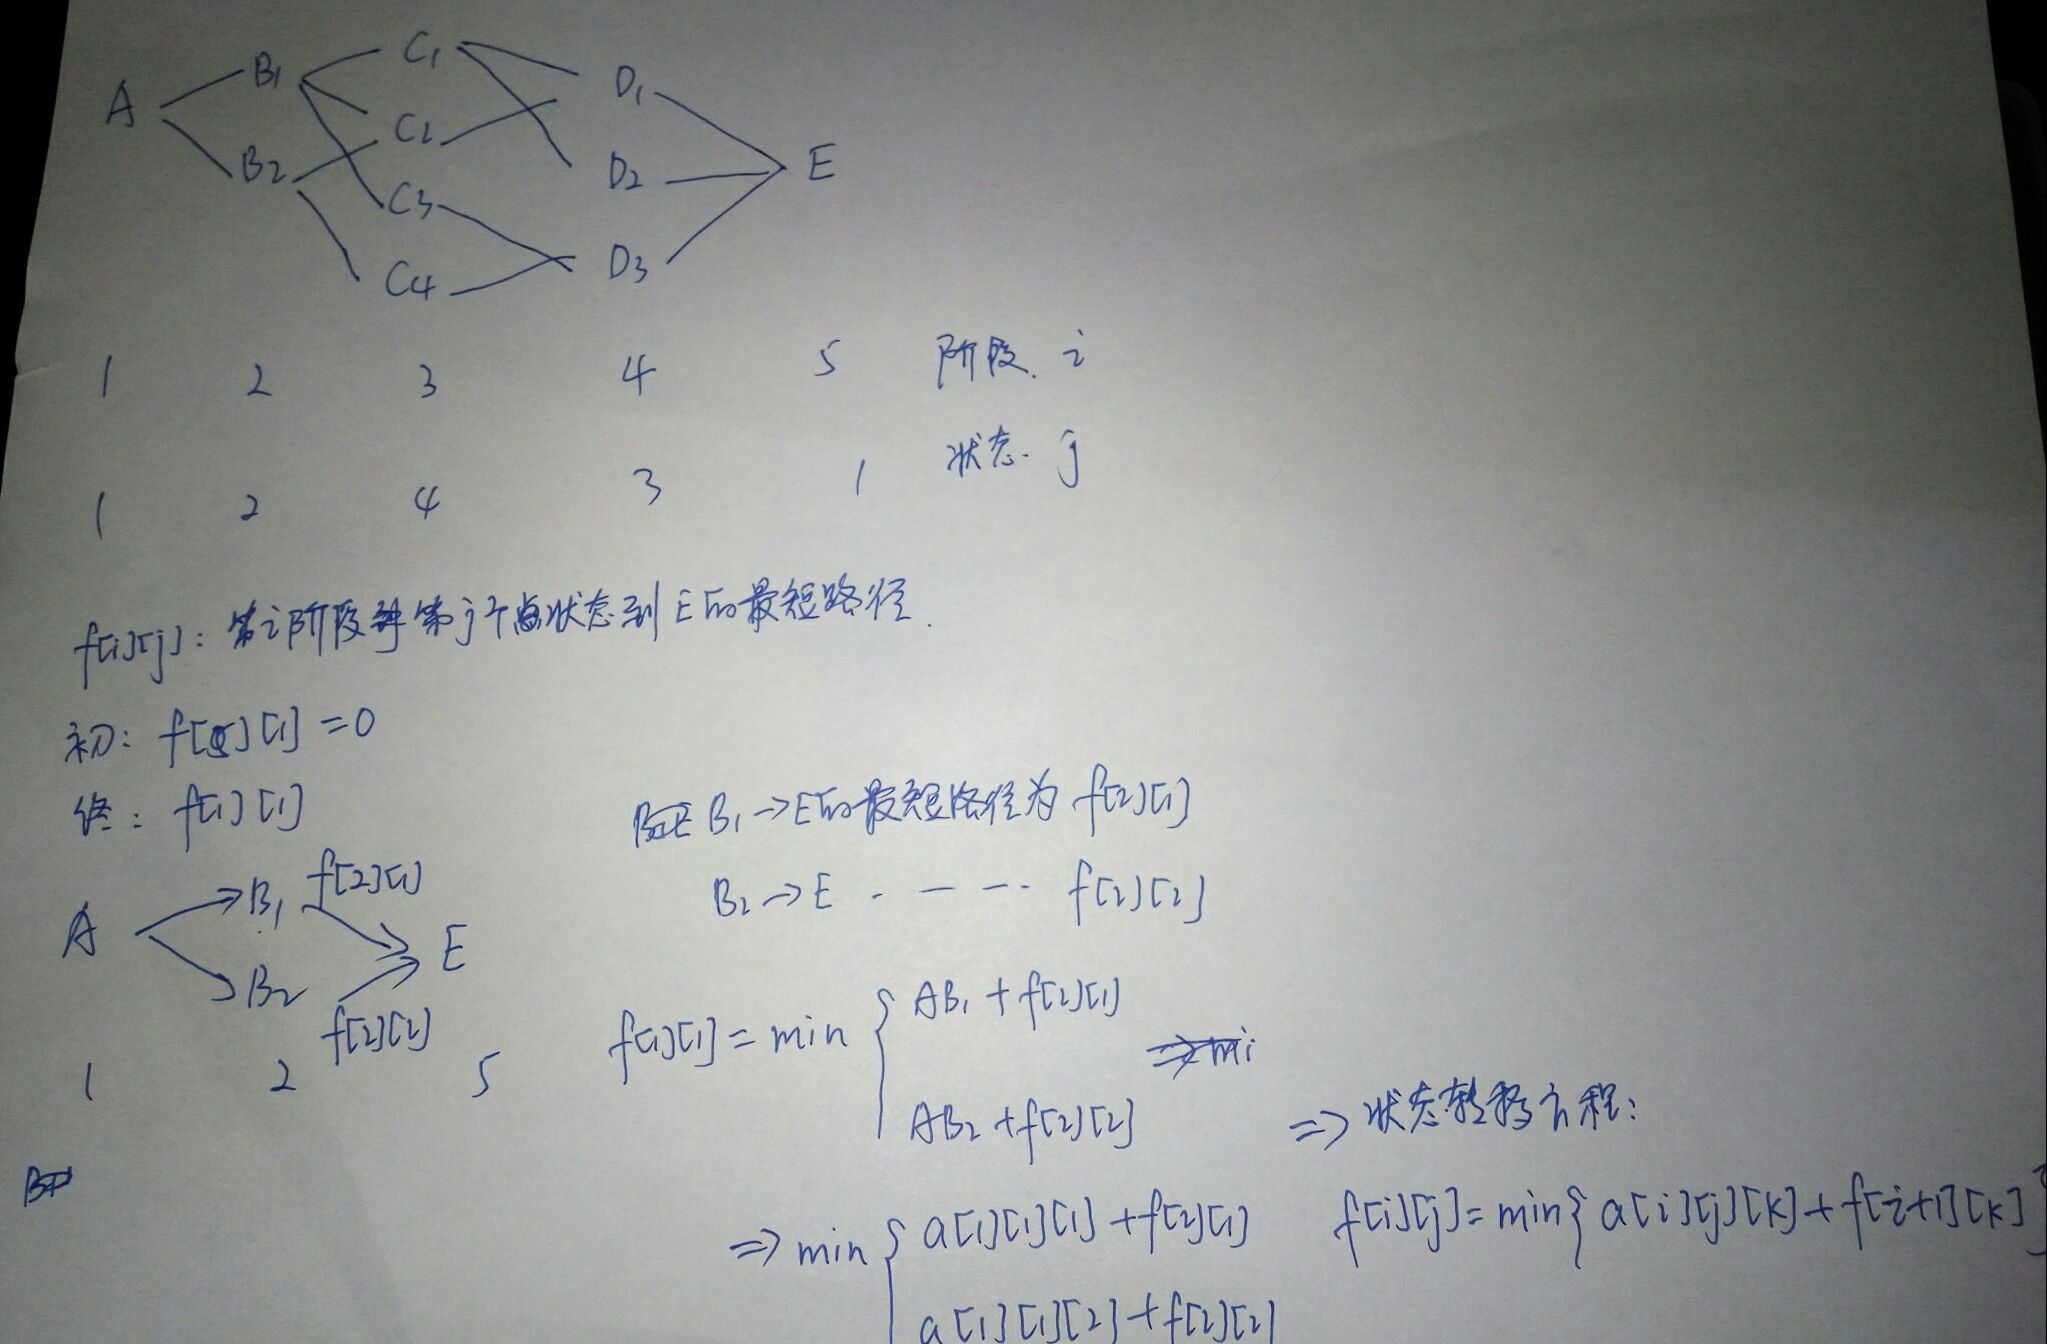 A B1 C1 D1
B2 C2 D2 E
C3
C4 D3
1 2 3 4 5 阶段. i
1 2 4 3 1 状态. j
f[i][j]: 第i阶段第j个状态到E的最短路径.
初: f[5][1] =0
终: f[1][1]
B1→E的最短路径为 f[2][1]
B2→E . — — ·· f[2][2]
A B1 f[2][1] E
B2 f[2][2]
1 2 5
f[1][1] = min { AB1 + f[2][1]
AB2 + f[2][2]
⇒ 状态转移方程:
⇒ min { a[1][1][1] + f[2][1]
a[1][1][2] + f[2][2]
f[i][j] = min{ a[i][j][k] + f[i+1][k] }